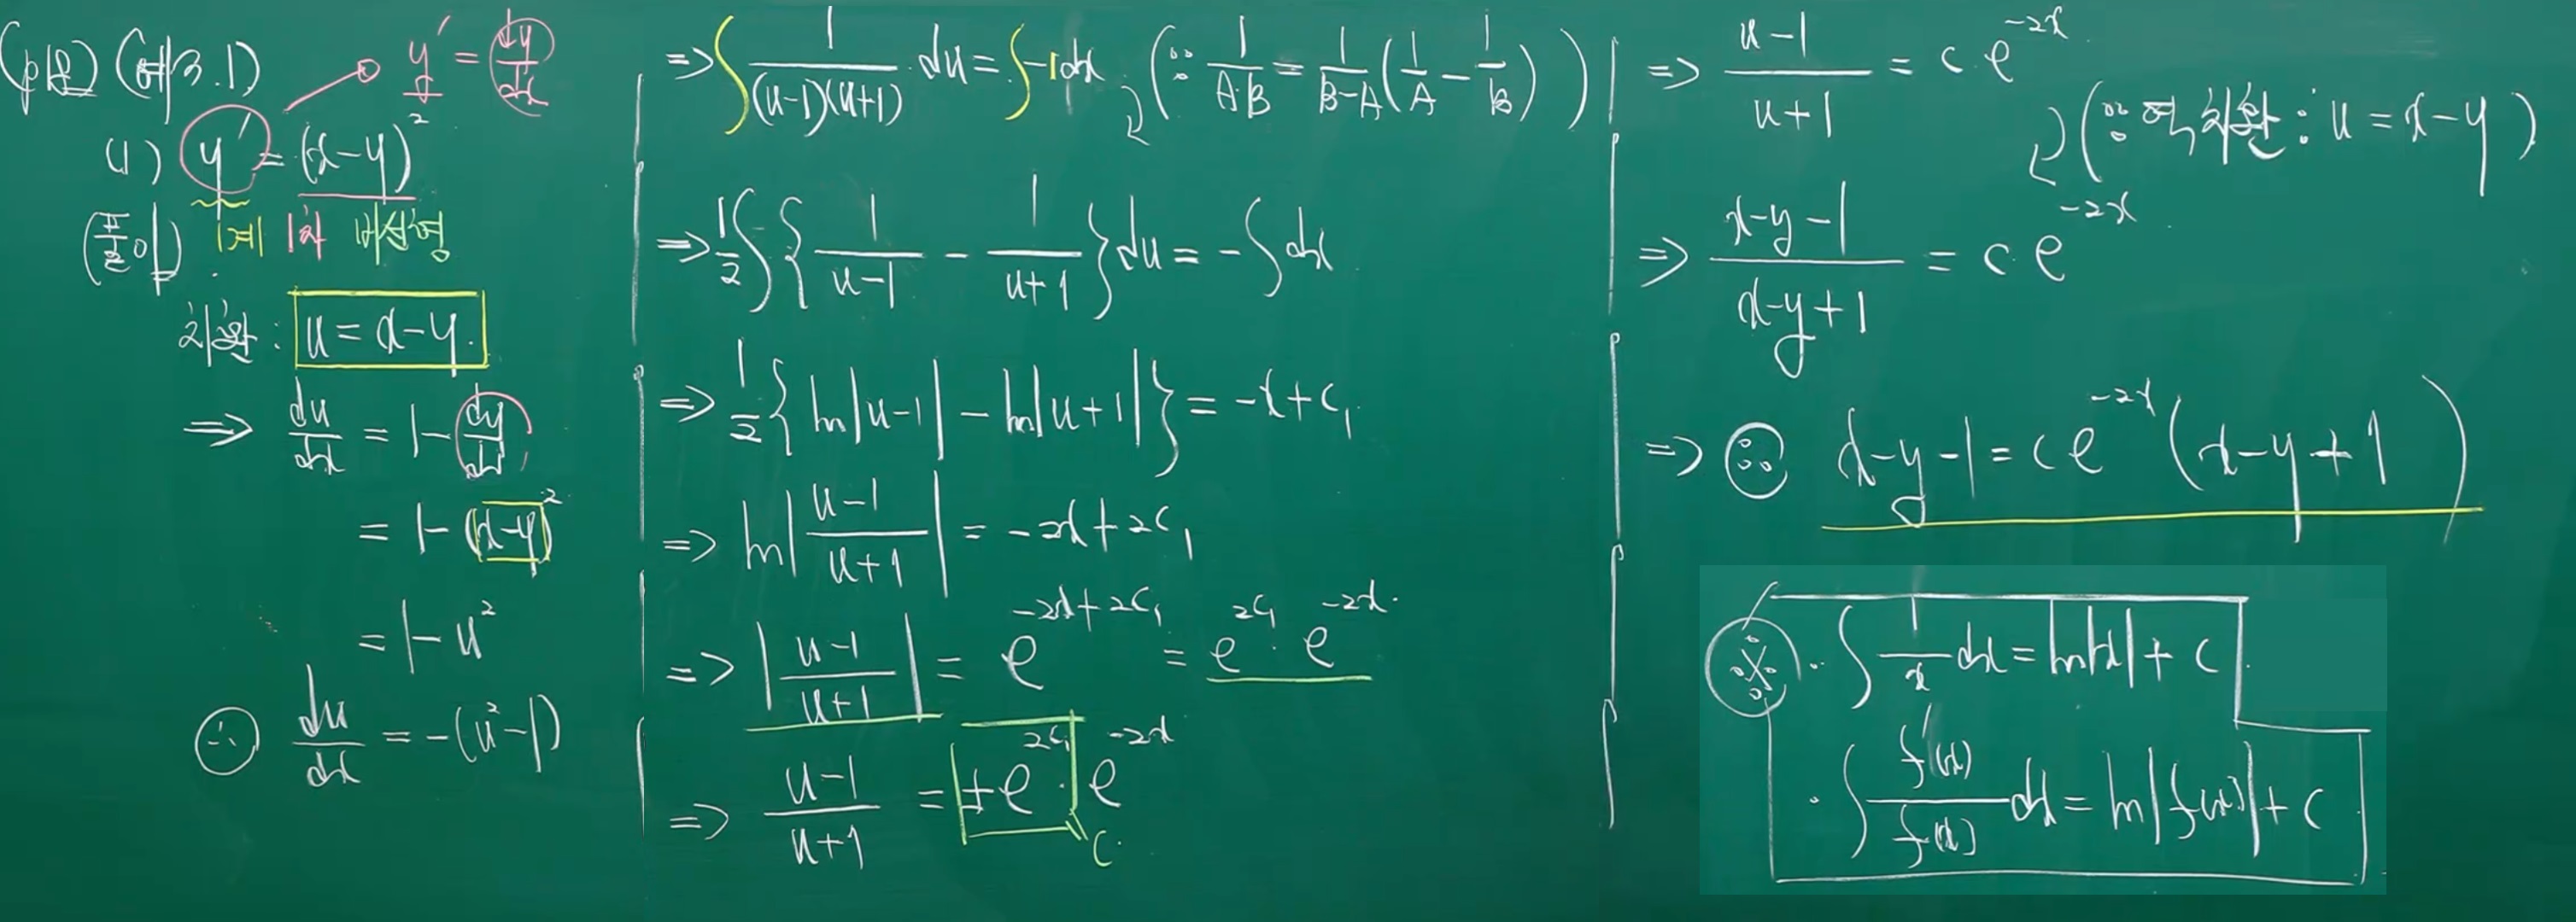 (예3.1)
y' = dy/dx
(1) y' = (x-y)²
(풀이) 1계 1차 비선형
치환 : u = x-y.
⇒ du/dx = 1 - dy/dx
= 1-(x-y)²
= 1-u²
∴ du/dx = -(u²-1)
⇒ ∫ 1/((u-1)(u+1)) du = ∫ -1 dx (∵ 1/(A·B) = 1/(B-A) (1/A - 1/B))
⇒ 1/2 ∫ { 1/(u-1) - 1/(u+1) } du = -∫ dx
⇒ 1/2 { ln|u-1| - ln|u+1| } = -x+c₁
⇒ ln| (u-1)/(u+1) | = -2x+2c₁
⇒ | (u-1)/(u+1) | = e^(-2x+2c₁) = e^(2c₁) · e^(-2x)
⇒ (u-1)/(u+1) = ±e^(2c₁) · e^(-2x)
c
⇒ (u-1)/(u+1) = c·e^(-2x)
(∵ 역치환 : u = x-y)
⇒ (x-y-1)/(x-y+1) = c e^(-2x)
⇒ ∴ x-y-1 = c e^(-2x) (x-y+1)
※ · ∫ 1/x dx = ln|x| + c
· ∫ f'(x)/f(x) dx = ln|f(x)| + c